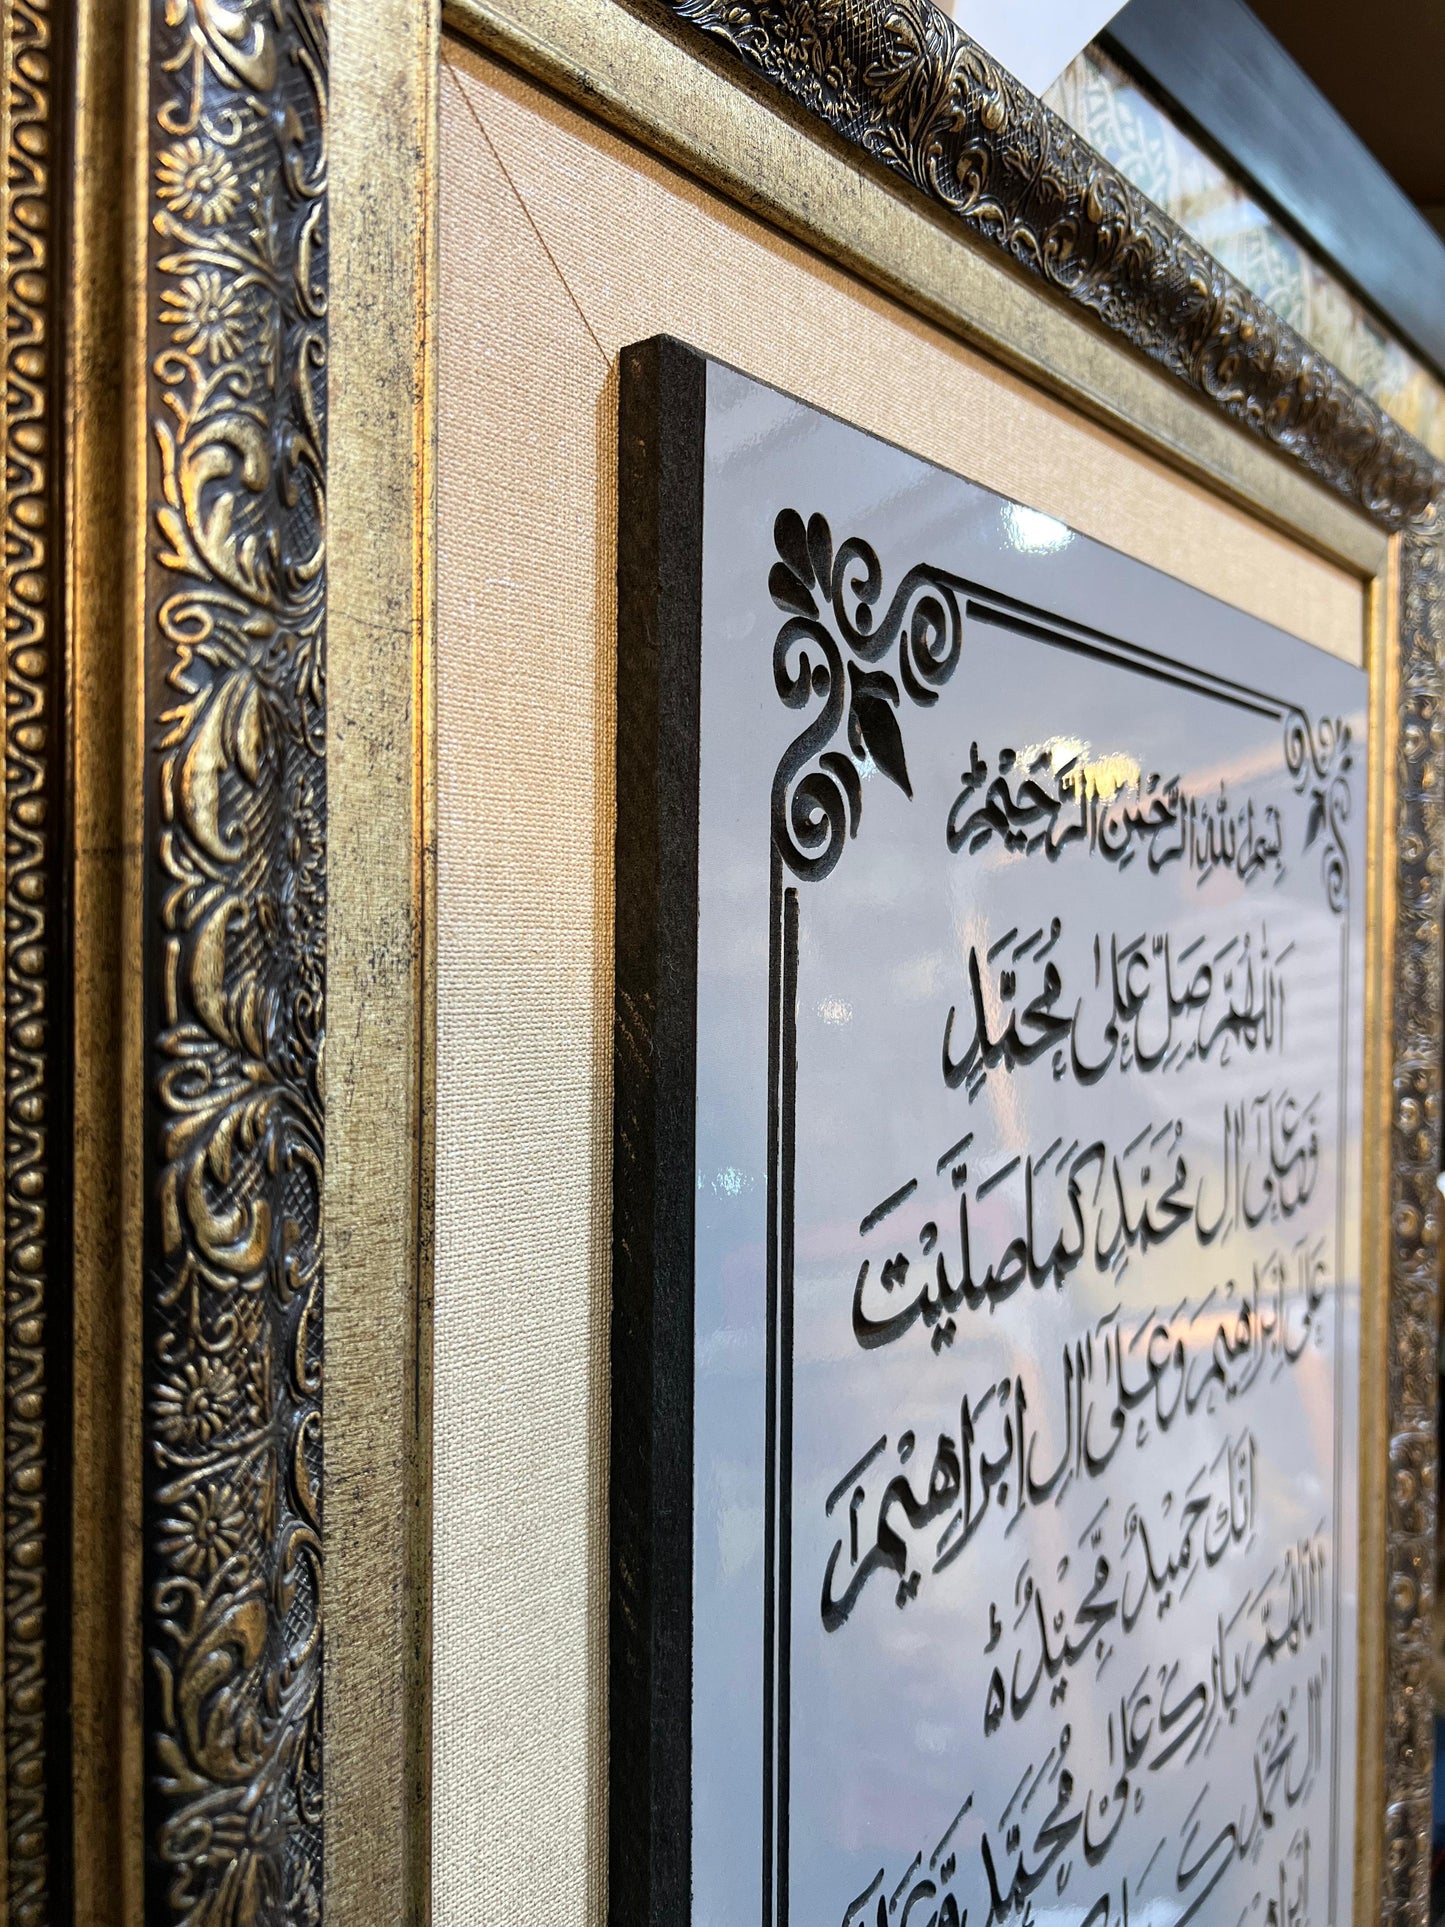 بِسْمِ اللهِ الرَّحْمٰنِ الرَّحِيْمِ
اَللّٰهُمَّ صَلِّ عَلٰى مُحَمَّدٍ
وَّعَلٰٓى اٰلِ مُحَمَّدٍ كَمَا صَلَّيْتَ
عَلٰٓى اِبْرَاهِيْمَ وَعَلٰٓى اٰلِ اِبْرَاهِيْمَ
اِنَّكَ حَمِيْدٌ مَّجِيْدٌ
اَللّٰهُمَّ بَارِكْ عَلٰى مُحَمَّدٍ وَّعَلٰٓى
اٰلِ مُحَمَّدٍ كَمَا